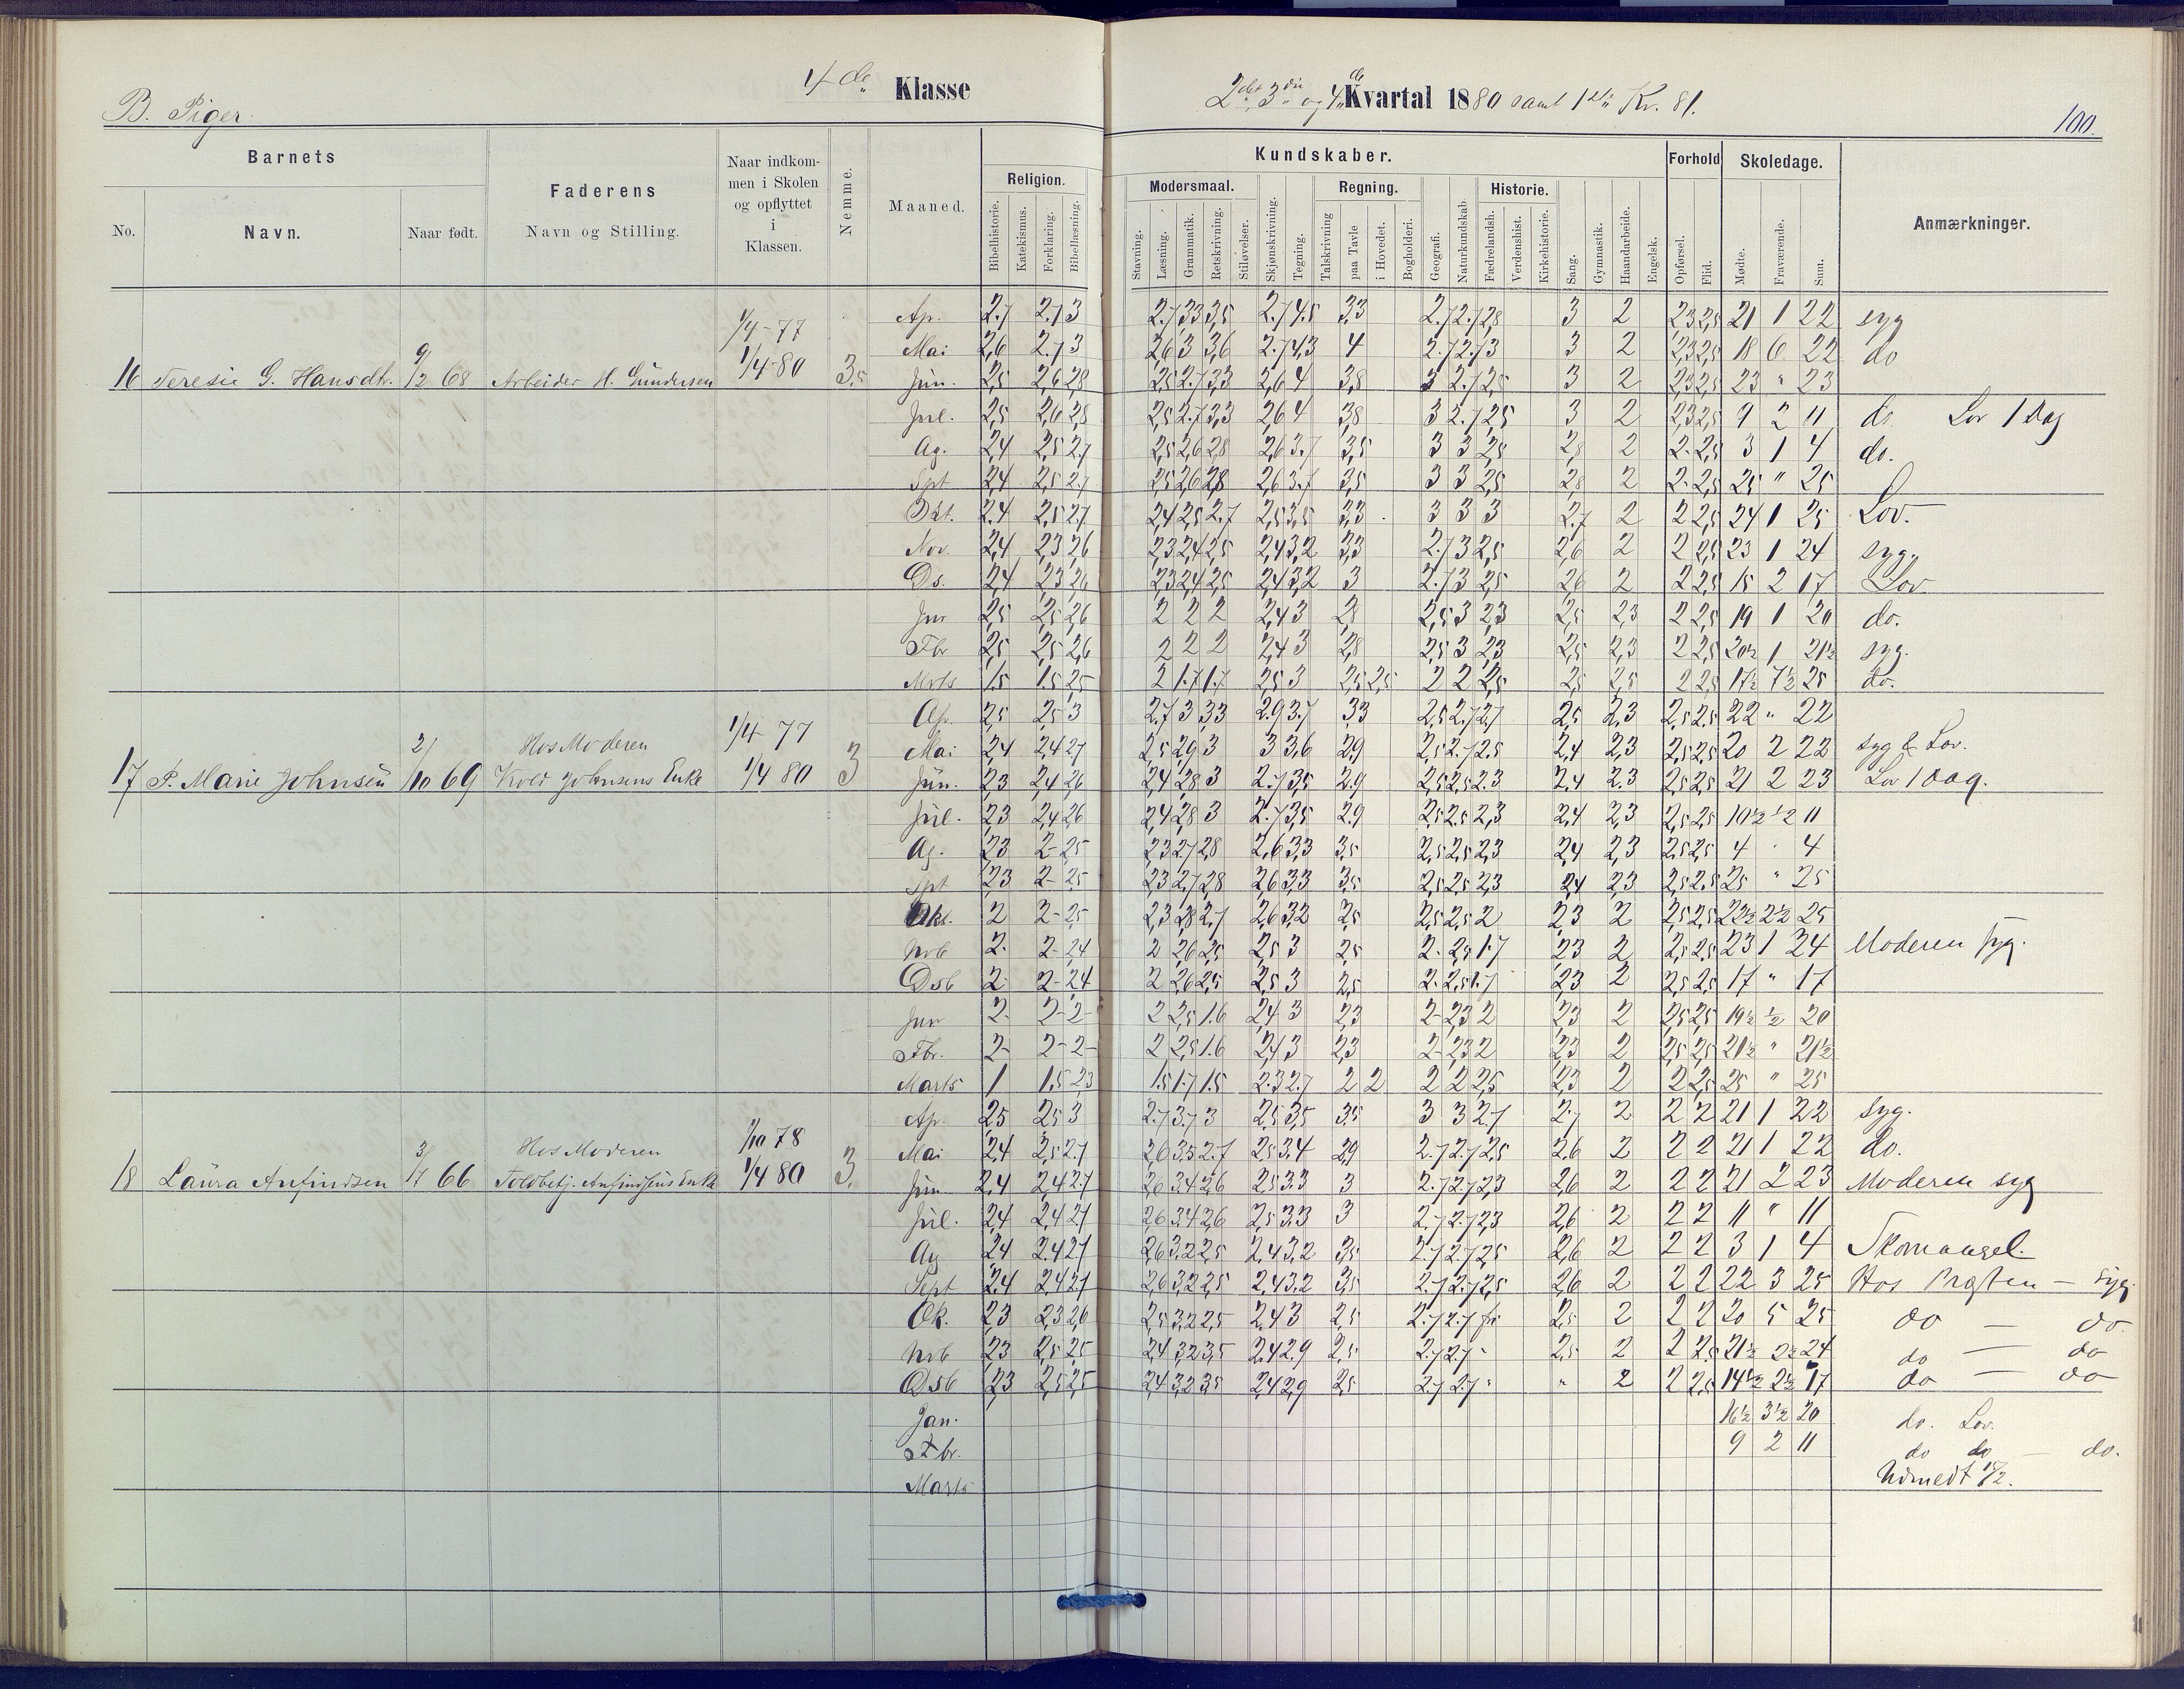 4de Klasse
2det 3die og 4de Kvartal 1880 samt 1ste Kv. 81.
B. Piger.
100.
Barnets
No.
Navn.
Naar født.
Faderens
Navn og Stilling.
Naar indkom-
men i Skolen
og opflyttet
i
Klassen.
Nemme.
Maaned.
Kundskaber.
Religion.
Bibelhistorie.
Katekismus.
Forklaring.
Bibellæsning.
Modersmaal.
Stavning.
Læsning.
Grammatik.
Retskrivning.
Stiløvelser.
Skjønskrivning.
Tegning.
Regning.
Talskrivning
paa Tavle
i Hovedet.
Bogholderi.
Geografi.
Naturkundskab
Historie.
Fædrelandsh.
Verdenshist.
Kirkehistorie.
Sang.
Gymnastik.
Haandarbeide.
Engelsk.
Forhold
Opførsel.
Flid.
Skoledage.
Mødte.
Fraværende.
Sum.
Anmærkninger.
1/4-77
Ap. 2.7 2.7 3 2.7 3 3 3,5 2.7 4.5 3,3 2.7 2.7 2,8 3 2 2,3 2,5 21 1 22 syg
Mai 2,6 2.7 3 2,6 3 3,6 2.7 4,3 4 2.7 2.7 3 3 2 2,3 2,5 18 6 22 do
16 Teresie G. Hansdtr. 9/2 68 Arbeider H. Gundersen 1/4-80 3,5 Jun. 2,5 2,6 2,8 2,5 2.7 3,3 2,6 4 3,8 3 2.7 2,5 3 2 2,3 2,5 23 " 23
Jul. 2,5 2,6 2,8 2,5 2.7 3,3 2,6 4 3,8 3 2.7 2,5 3 2 2,3 2,5 9 2 11 do. Lov 1 Dag
Ag. 2,4 2,5 2,7 2,5 2,6 2,8 2,6 3.7 3,5 3 3 2,5 2,8 2 2- 2,5 3 1 4 do.
Spt 2,4 2,5 2.7 2,5 2,6 2,8 2,6 3.7 3,5 3 3 2,5 2,8 2 2- 2,5 25 " 25
Okt. 2.4 2,5 2,7 2,4 2,5 2.7 2,5 3,5 3,3 3 3 3 2.7 2 2 2,5 24 1 25 Lov.
Nov. 2,4 2,3 2,6 2,3 2,4 2,5 2,4 3,2 3,3 2.7 3 2,5 2,6 2 2 2,5 23 1 24 syg.
Ds. 2,4 2,3 2,6 2,3 2,4 2,5 2,4 3,2 3 2.7 3 2,5 2,6 2 2 2,5 15 2 17 Lov.
Jnr 2,5 2,5 2,6 2 2 2 2,4 3 2,8 2,5 3 2,3 2,5 2,3 2 2,5 19 1 20 do.
Fbr 2,5 2,5 2,6 2 2 2 2,4 3 2,8 2,5 3 2,3 2,5 2,3 2 2,5 20½ 1 21½ syg.
Mrts 1.5 1.5 2,5 2 1.7 1.7 2,5 3 2,5 2,5 2 2 2,5 2,5 2,5 2 2,5 17½ 7½ 25 do.
1/4 77
Ap. 2,5 2,5 3 2.7 3 3,3 2.9 3.7 3,3 2,5 2.7 2,7 2,5 2,3 2,5 2,5 22 " 22
Hos Moderen
Mai 2,4 2,4 2,7 2,5 2,9 3 3 3,6 2,9 2,5 2.7 2,5 2,4 2,3 2,5 2,5 20 2 22 syg & Lov.
17 P. Marie Johnsen 2/10 69 Kold Johnsens Enke 1/4 80 3 Jun. 2,3 2,4 2,6 2,4 2,8 3 2.7 3,5 2.9 2,5 2,5 2.3 2,4 2.3 2,5 2,5 21 2 23 Lov 1 Dag.
Jul. 2,3 2,4 2,6 2,4 2,8 3 2.7 3,5 2.9 2,5 2.5 2,3 2,4 2,3 2,5 2,5 10½ ½ 11
Ag. 2,3 2- 2,5 2,3 2,7 2,8 2,6 3,3 3,5 2,5 2,5 2,3 2,4 2,3 2,5 2,5 4 " 4
Spt 2,3 2- 2,5 2,3 2,7 2,8 2,6 3,3 3,5 2,5 2,5 2,3 2,4 2,3 2,5 2,5 25 " 25
Okt. 2 2- 2,5 2,3 2,8 2,7 2,6 3,2 2,5 2,5 2,5 2 2,3 2 2,5 2,5 22½ 2½ 25
Nvb 2- 2- 2,4 2 2,6 2,5 2,5 3 2,5 2- 2,5 1.7 2,3 2 2,5 2,5 23 1 24 Moderen syg.
Dsb 2- 2- 2,4 2 2,6 2,5 2,5 3 2,5 2- 2,5 1.7 2,3 2 2,5 2,5 17 " 17
Jnr 2- 2- 2- 2 2,5 1.6 2,4 3 2,3 2- 2,3 2 2,3 2 2,5 2,5 19½ ½ 20
Fbr. 2- 2- 2- 2 2,5 1.6 2,4 3 2,3 2- 2,3 2 2,3 2 2,5 2,5 21½ " 21½
Marts 1 1.5 2,3 1.5 1.7 1.5 2.3 2.7 2 2 2 2 2,5 2,3 2 2 2,5 25 " 25
Ap. 2,5 2,5 3 2.7 3.7 3 2,5 3,5 3,5 3 3 2.7 2.7 2 2 2 21 1 22 syg.
1/10 78
Hos Moderen
Mai 2,4 2,5 2.7 2,6 3,5 2.7 2,5 3,4 2,9 2.7 2.7 2,5 2,6 2 2 2 21 1 22 do.
18 Laura Anfindsen 66 Toldbetj. Anfindsens Enke 1/4 80 3. Jun. 2,4 2,4 2.7 2,6 3,4 2,6 2,5 3,3 3 2.7 2.7 2,3 2,6 2 2 2 21 2 23 Moderen syg
Jul. 2,4 2,4 2,7 2,6 3,4 2,6 2,5 3,3 3 2.7 2.7 2,3 2,6 2 2 2 11 " 11
Ag 2,4 2.4 2,7 2,6 3,2 2,5 2,4 3,2 3,5 2.7 2.7 2,5 2,6 2 2 2 3 1 4 Skomangel.
Sept 2,4 2,4 2,7 2,6 3,2 2,5 2,4 3,2 3,5 2.7 2.7 2,5 2,6 2 2 2 22 3 25 Hos Præsten — syg.
Ok. 2,3 2,3 2,6 2,5 3,2 2,5 2,4 3 2,5 2.7 2.7 fri 2,5 2 2 2 20 5 25 do — do.
Nvb 2,3 2,5 2,5 2,4 3,2 3,5 2,4 2.9 2,5 2.7 2.7 " 2,5 2 2 2,5 21½ 2½ 24 do — do
Dsb 2,3 2,5 2,5 2,4 3,2 3,5 2,4 2,9 2,5 2.7 2.7 " " 2 2 2,5 14½ 2½ 17 do — do
Jan. 16½ 3½ 20 do. Lov.
Fbr. 9 2 11 do do — do.
Marts Udmeldt 15/2.